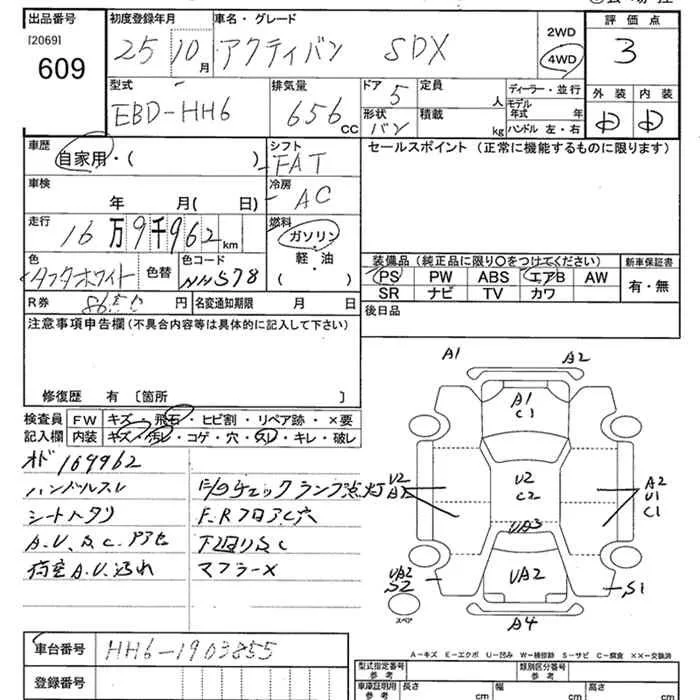 出品番号
[2069]
609
初度登録年月
25 10月
車名・グレード
アクティバン SDX
2WD
4WD
評価点
3
外装 内装
D D
型式
EBD-HH6
排気量
656cc
ドア
5
形状
バン
定員
人
積載
kg
ディーラー・並行
モデル
年式 年
ハンドル 左・右
車歴
自家用・( )
シフト
FAT
車検
年 月( 日)
冷房
AC
走行
16万9千962km
燃料
ガソリン
軽・油
色
タフタホワイト
色替
色コード
NH578
R券 円
名変通知期限 月 日
セールスポイント(正常に機能するものに限ります)
装備品(純正品に限り○をつけてください)
PS PW ABS エアB AW
SR ナビ TV カワ
新車保証書
有・無
後日品
注意事項申告欄(不具合内容等は具体的に記入して下さい)
修復歴 有〔箇所 〕
検査員
記入欄
FW キズ・飛石・ヒビ割・リペア跡・×要
内装 キズ・汚レ・コゲ・穴・スレ・キレ・破レ
オド 169962
ハンドルスレ
シートヘタリ
A.U、S.C.アアセ
荷室A.U.汚れ
エンジンチェックランプ点灯
F.RフロアC穴
下回りS.C
マフラーX
A1 A2
A1
C1
U2
C2
U2
A2
U1
C1
UA3
UA2
UA2
S2
S1
A4
スペア
A-キズ E-エクボ U-凹み W-補修跡 S-サビ C-腐食 ××-交換済
車台番号
HH6-1903855
登録番号
型式指定番号
参考
類別区分番号
参考
車庫証明用
参考
長さ cm
幅 cm
高さ cm